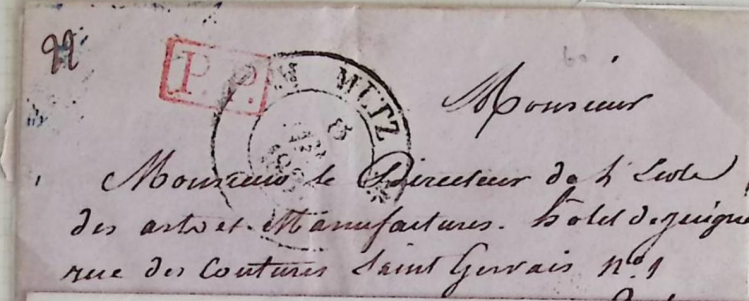 22
P.P.
METZ
8
Monsieur
Monsieur le Directeur de l'Ecole
des arts et Manufactures. hotel de juigné
rue des Coutures Saint Gervais n° 1